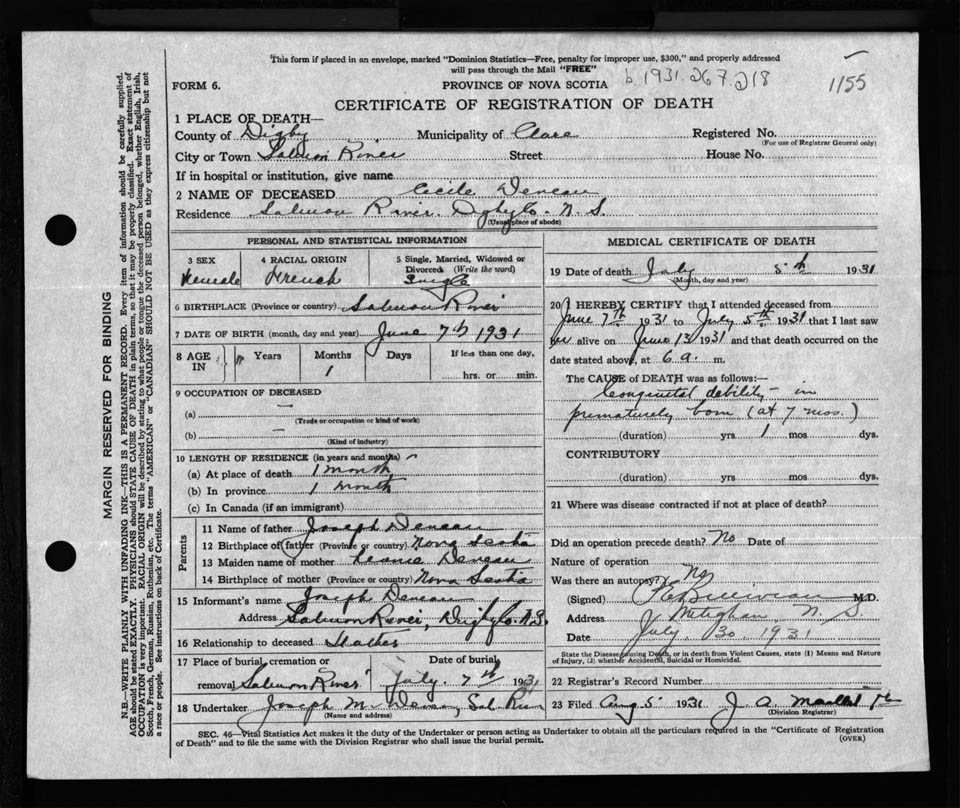 This form if placed in an envelope, marked "Dominion Statistics—Free, penalty for improper use, $300," and properly addressed
will pass through the Mail "FREE"
b. 1931. 267218
1155
FORM 6.
PROVINCE OF NOVA SCOTIA
CERTIFICATE OF REGISTRATION OF DEATH
1 PLACE OF DEATH—
County of Digby Municipality of Clare Registered No.
(For use of Registrar General only)
City or Town Salmon River Street House No.
If in hospital or institution, give name
2 NAME OF DECEASED Cecile Deneau
Residence Salmon River. Digby Co. N. S.
(Usual place of abode)
PERSONAL AND STATISTICAL INFORMATION
3 SEX 4 RACIAL ORIGIN 5 Single, Married, Widowed or
Divorced (Write the word)
Female French Single
6 BIRTHPLACE (Province or country) Salmon River
7 DATE OF BIRTH (month, day and year) June 7th 1931
8 AGE IN Years Months Days If less than one day,
1 hrs. or min.
9 OCCUPATION OF DECEASED
(a) —
(Trade or occupation or kind of work)
(b) —
(Kind of industry)
10 LENGTH OF RESIDENCE (in years and months)
(a) At place of death 1 month
(b) In province 1 month
(c) In Canada (if an immigrant)
Parents
11 Name of father Joseph Deneau
12 Birthplace of father (Province or country) Nova Scotia
13 Maiden name of mother Deneau
14 Birthplace of mother (Province or country) Nova Scotia
15 Informant's name Joseph Deneau
Address Salmon River, Digby Co. N.S.
16 Relationship to deceased Father
17 Place of burial, cremation or Date of burial
removal Salmon River July 7th 1931
18 Undertaker Joseph M. Deneau, Sal. River
(Name and address)
MEDICAL CERTIFICATE OF DEATH
19 Date of death July 5th 1931
(Month, day and year)
20 I HEREBY CERTIFY that I attended deceased from
June 7th 1931 to July 5th 1931 that I last saw
her alive on June 13 1931 and that death occurred on the
date stated above, at 6 a. m.
The CAUSE of DEATH was as follows:—
Congenital debility — in
prematurely born (at 7 mos.)
(duration) yrs 1 mos dys.
CONTRIBUTORY
(duration) yrs mos dys.
21 Where was disease contracted if not at place of death?
Did an operation precede death? No Date of
Nature of operation
Was there an autopsy? No
(Signed) M.D.
Address Meteghan N. S.
Date July 30. 1931
State the Disease causing Death, or in death from Violent Causes, state (1) Means and Nature
of Injury, (2) whether Accidental, Suicidal or Homicidal.
22 Registrar's Record Number
23 Filed Aug 5 1931 J. A.
(Division Registrar)
SEC. 46—Vital Statistics Act makes it the duty of the Undertaker or person acting as Undertaker to obtain all the particulars required in the "Certificate of Registration
of Death" and to file the same with the Division Registrar who shall issue the burial permit.
(OVER)
MARGIN RESERVED FOR BINDING
N.B.—WRITE PLAINLY WITH UNFADING INK—THIS IS A PERMANENT RECORD. Every item of information should be carefully supplied.
AGE should be stated EXACTLY. PHYSICIANS should STATE CAUSE OF DEATH in plain terms, so that it may be properly classified. Exact statement of
OCCUPATION is very important. RACIAL ORIGIN will be described by stating to what people or tongue the deceased person belonged, whether English, Irish,
Scotch, French, German, Russian, Ruthenian, etc. The terms "AMERICAN" or "CANADIAN" SHOULD NOT BE USED as they express citizenship but not
a race or people. See instructions on back of Certificate.